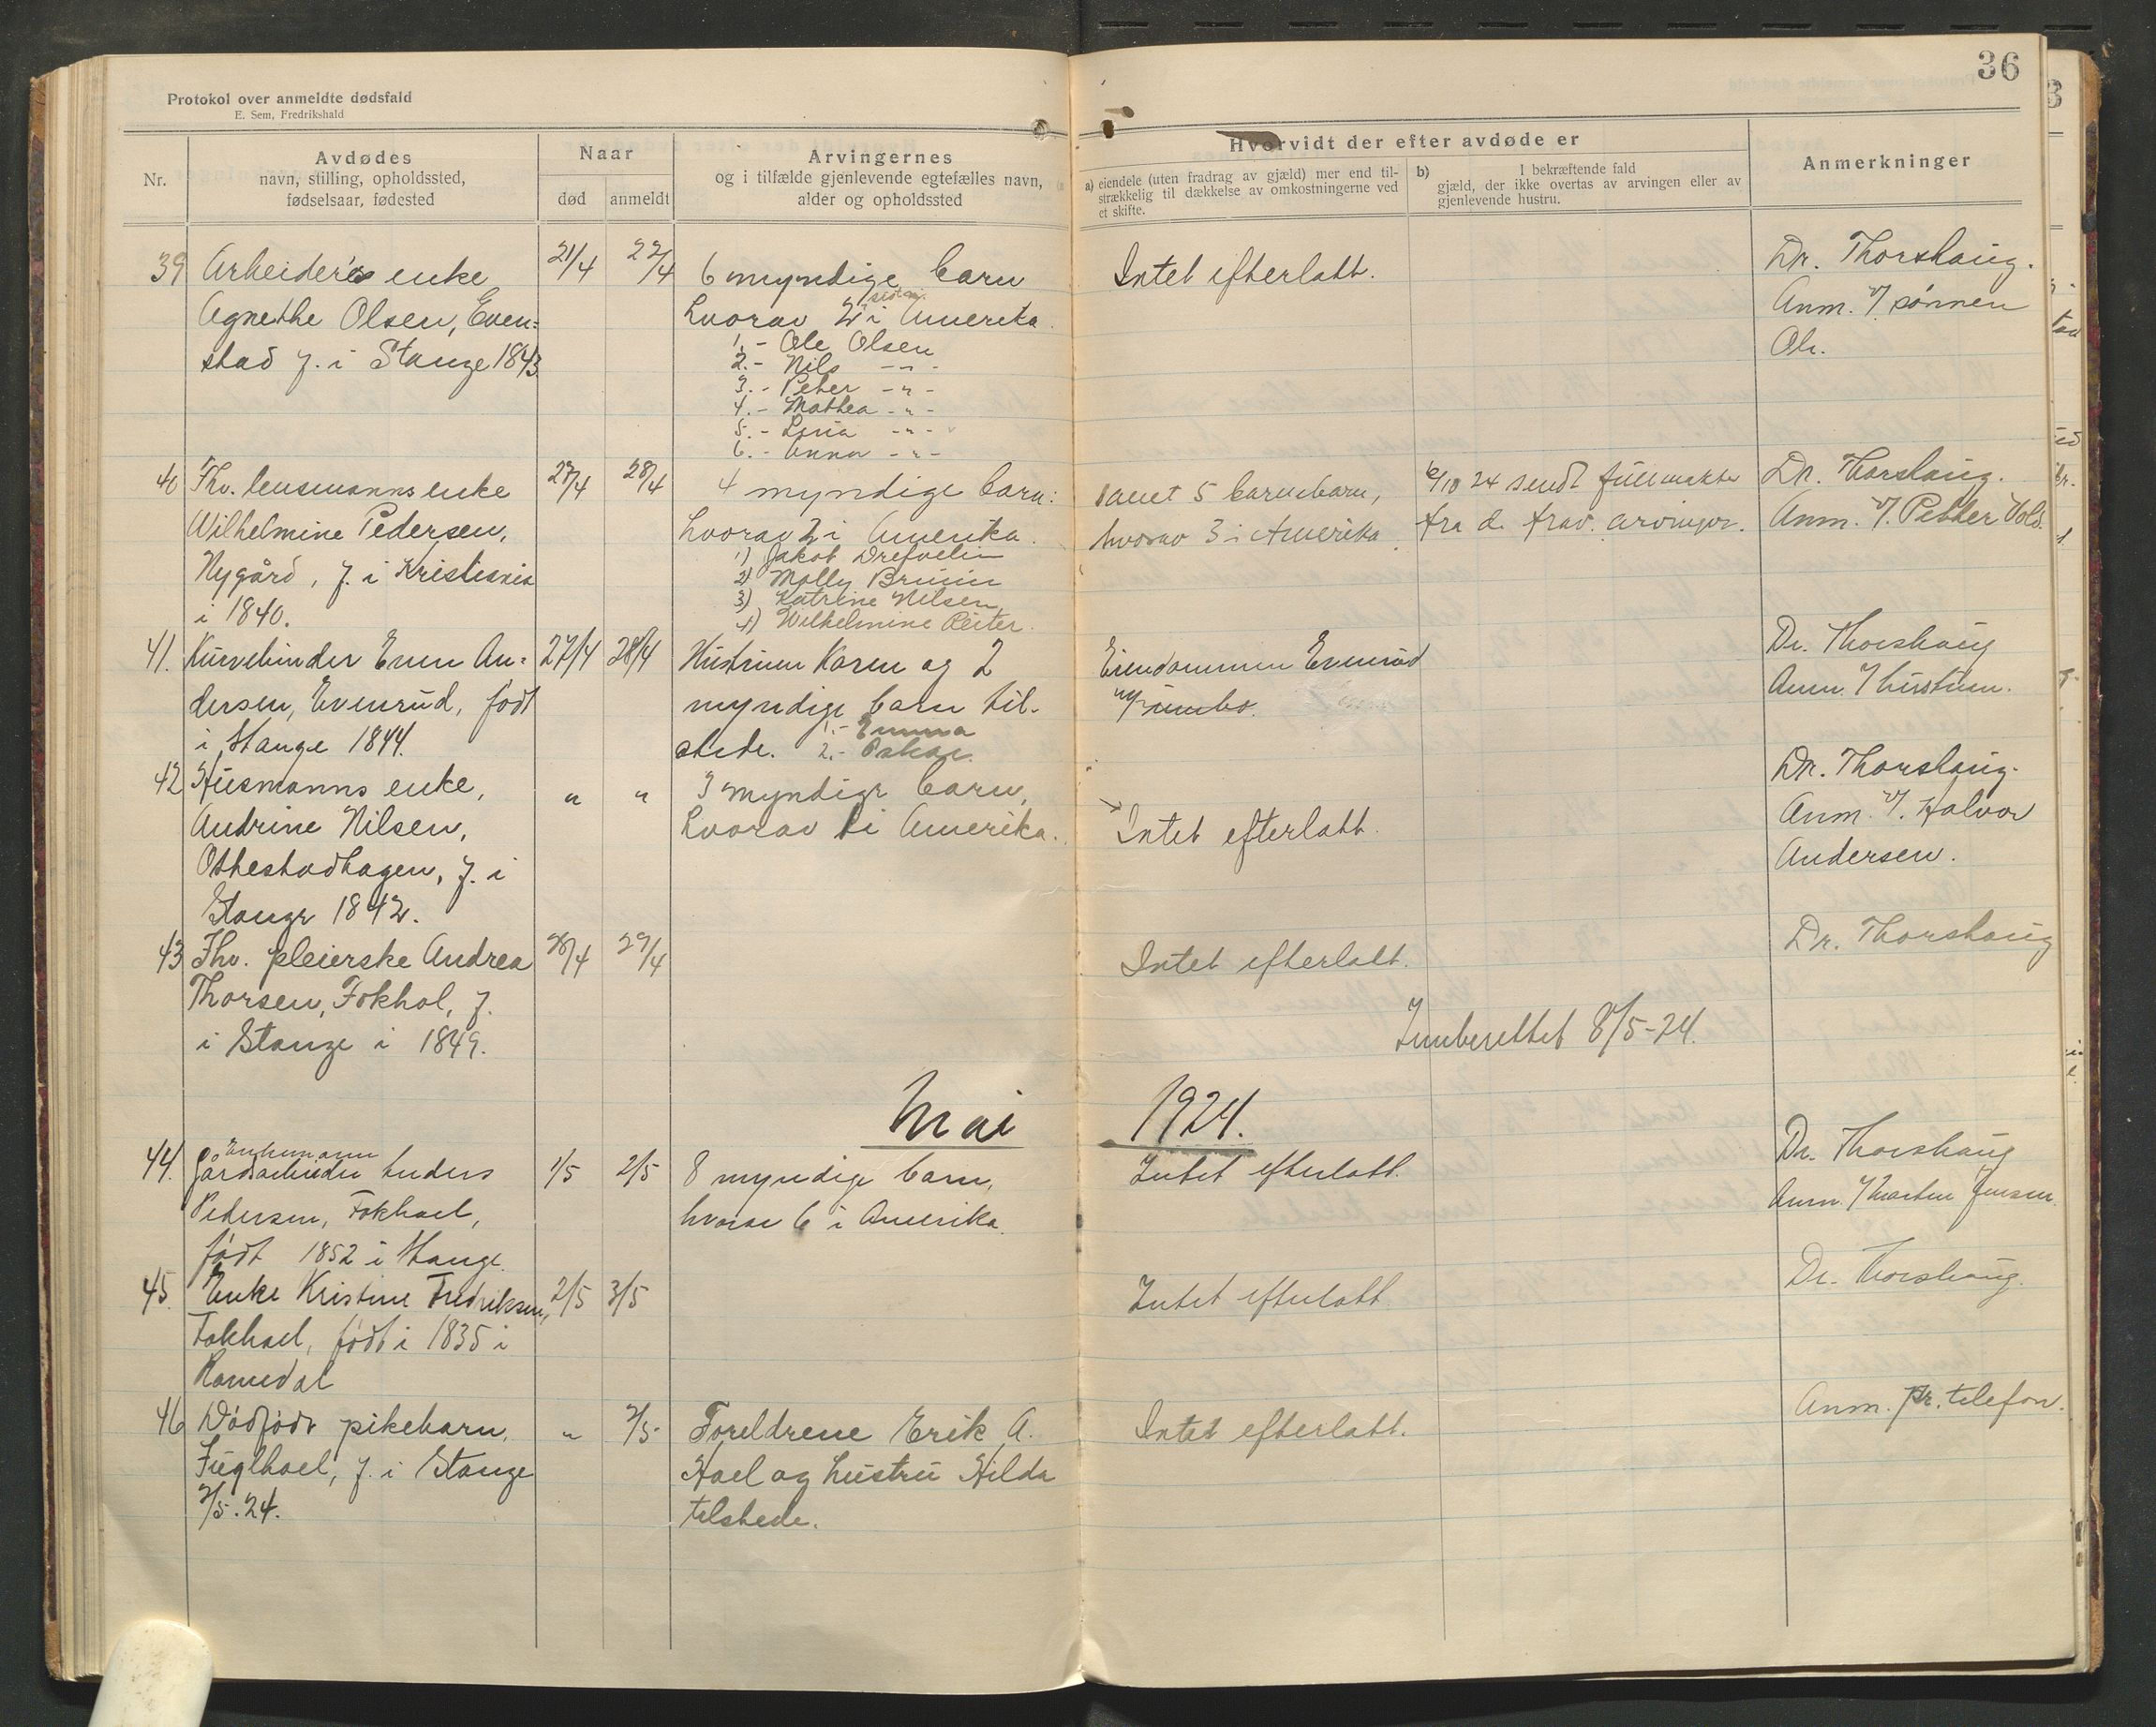 36
Protokol over anmeldte dødsfald
E. Sem, Fredrikshald
Nr.
Avdødes
navn, stilling, opholdssted,
fødselsaar, fødested
Naar
død
anmeldt
Arvingernes
og i tilfælde gjenlevende egtefælles navn,
alder og opholdssted
Hvorvidt der efter avdøde er
a) eiendele (uten fradrag av gjæld) mer end til-
strækkelig til dækkelse av omkostningerne ved
et skifte.
b) I bekræftende fald
gjæld, der ikke overtas av arvingen eller av
gjenlevende hustru.
Anmerkninger
39
Arbeider's enke
Agnethe Olsen, Even-
stad f. i Stange 1843
21/4
22/4
6 myndige barn
hvorav 2 i Amerika.
1.- Ole Olsen
2.- Nils -"-
3.- Peter -"-
4.- Mathea -"-
5.- Lina -"-
6.- Anna -"-
Intet efterlatt.
Dr. Thorshaug.
Anm. v/ sønnen
Ole.
40
Fhv. lensmanns enke
Wilhelmine Pedersen,
Nygård, f. i Kristiania
i 1840.
27/4
28/4
4 myndige barn:
hvorav 2 i Amerika.
1) Jakob Drefvelin
2) Molly Bruun
3) Katrine Nilsen
4) Wilhelmine Reiter.
samt 5 barnebarn,
hvorav 3 i Amerika.
/10 24 sendt fullmakter
fra d. frav. arvinger.
Dr. Thorshaug.
Anm. v/. Petter Vold.
41.
Kurvebinder Even An-
dersen, Evenrud, født
i Stange 1844.
27/4
28/4
Hustruen Karen og 2
myndige barn til-
stede. 1.- Emma
2.- Oskar.
Eiendommen Evenrud
m/ innbo.
Dr. Thorshaug
Anm. v/ hustruen.
42
Husmanns enke,
Andrine Nilsen,
Ottestadhagen, f. i
Stange 1842.
"
"
3 myndige barn,
hvorav 1 i Amerika.
Intet efterlatt.
Dr. Thorshaug.
Anm. v/. Halvor
Andersen.
43
Fhv. pleierske Andrea
Thorsen, Fokhol, f.
i Stange i 1849.
28/4
29/4
Intet efterlatt.
Dr. Thorshaug
Innberettet 8/5-24.
Mai 1924.
44.
Enkemann
Gårdsarbeider Anders
Pedersen, Fokhoel,
født 1852 i Stange.
1/5
2/5
8 myndige barn,
hvorav 6 i Amerika.
Intet efterlatt.
Dr. Thorshaug
Anm. v/ Marten Jensen
45.
Enke Kristine Fredriksen,
Fokhoel, født i 1835 i
Romedal
2/5
3/5
Intet efterlatt
Dr. Thorshaug.
46
Dødfødt pikebarn,
Fuglhoel, f. i Stange
2/5.24.
"
2/5
Foreldrene Erik A.
Hoel og hustru Hilda
tilstede.
Intet efterlatt.
Anm. pr. telefon.